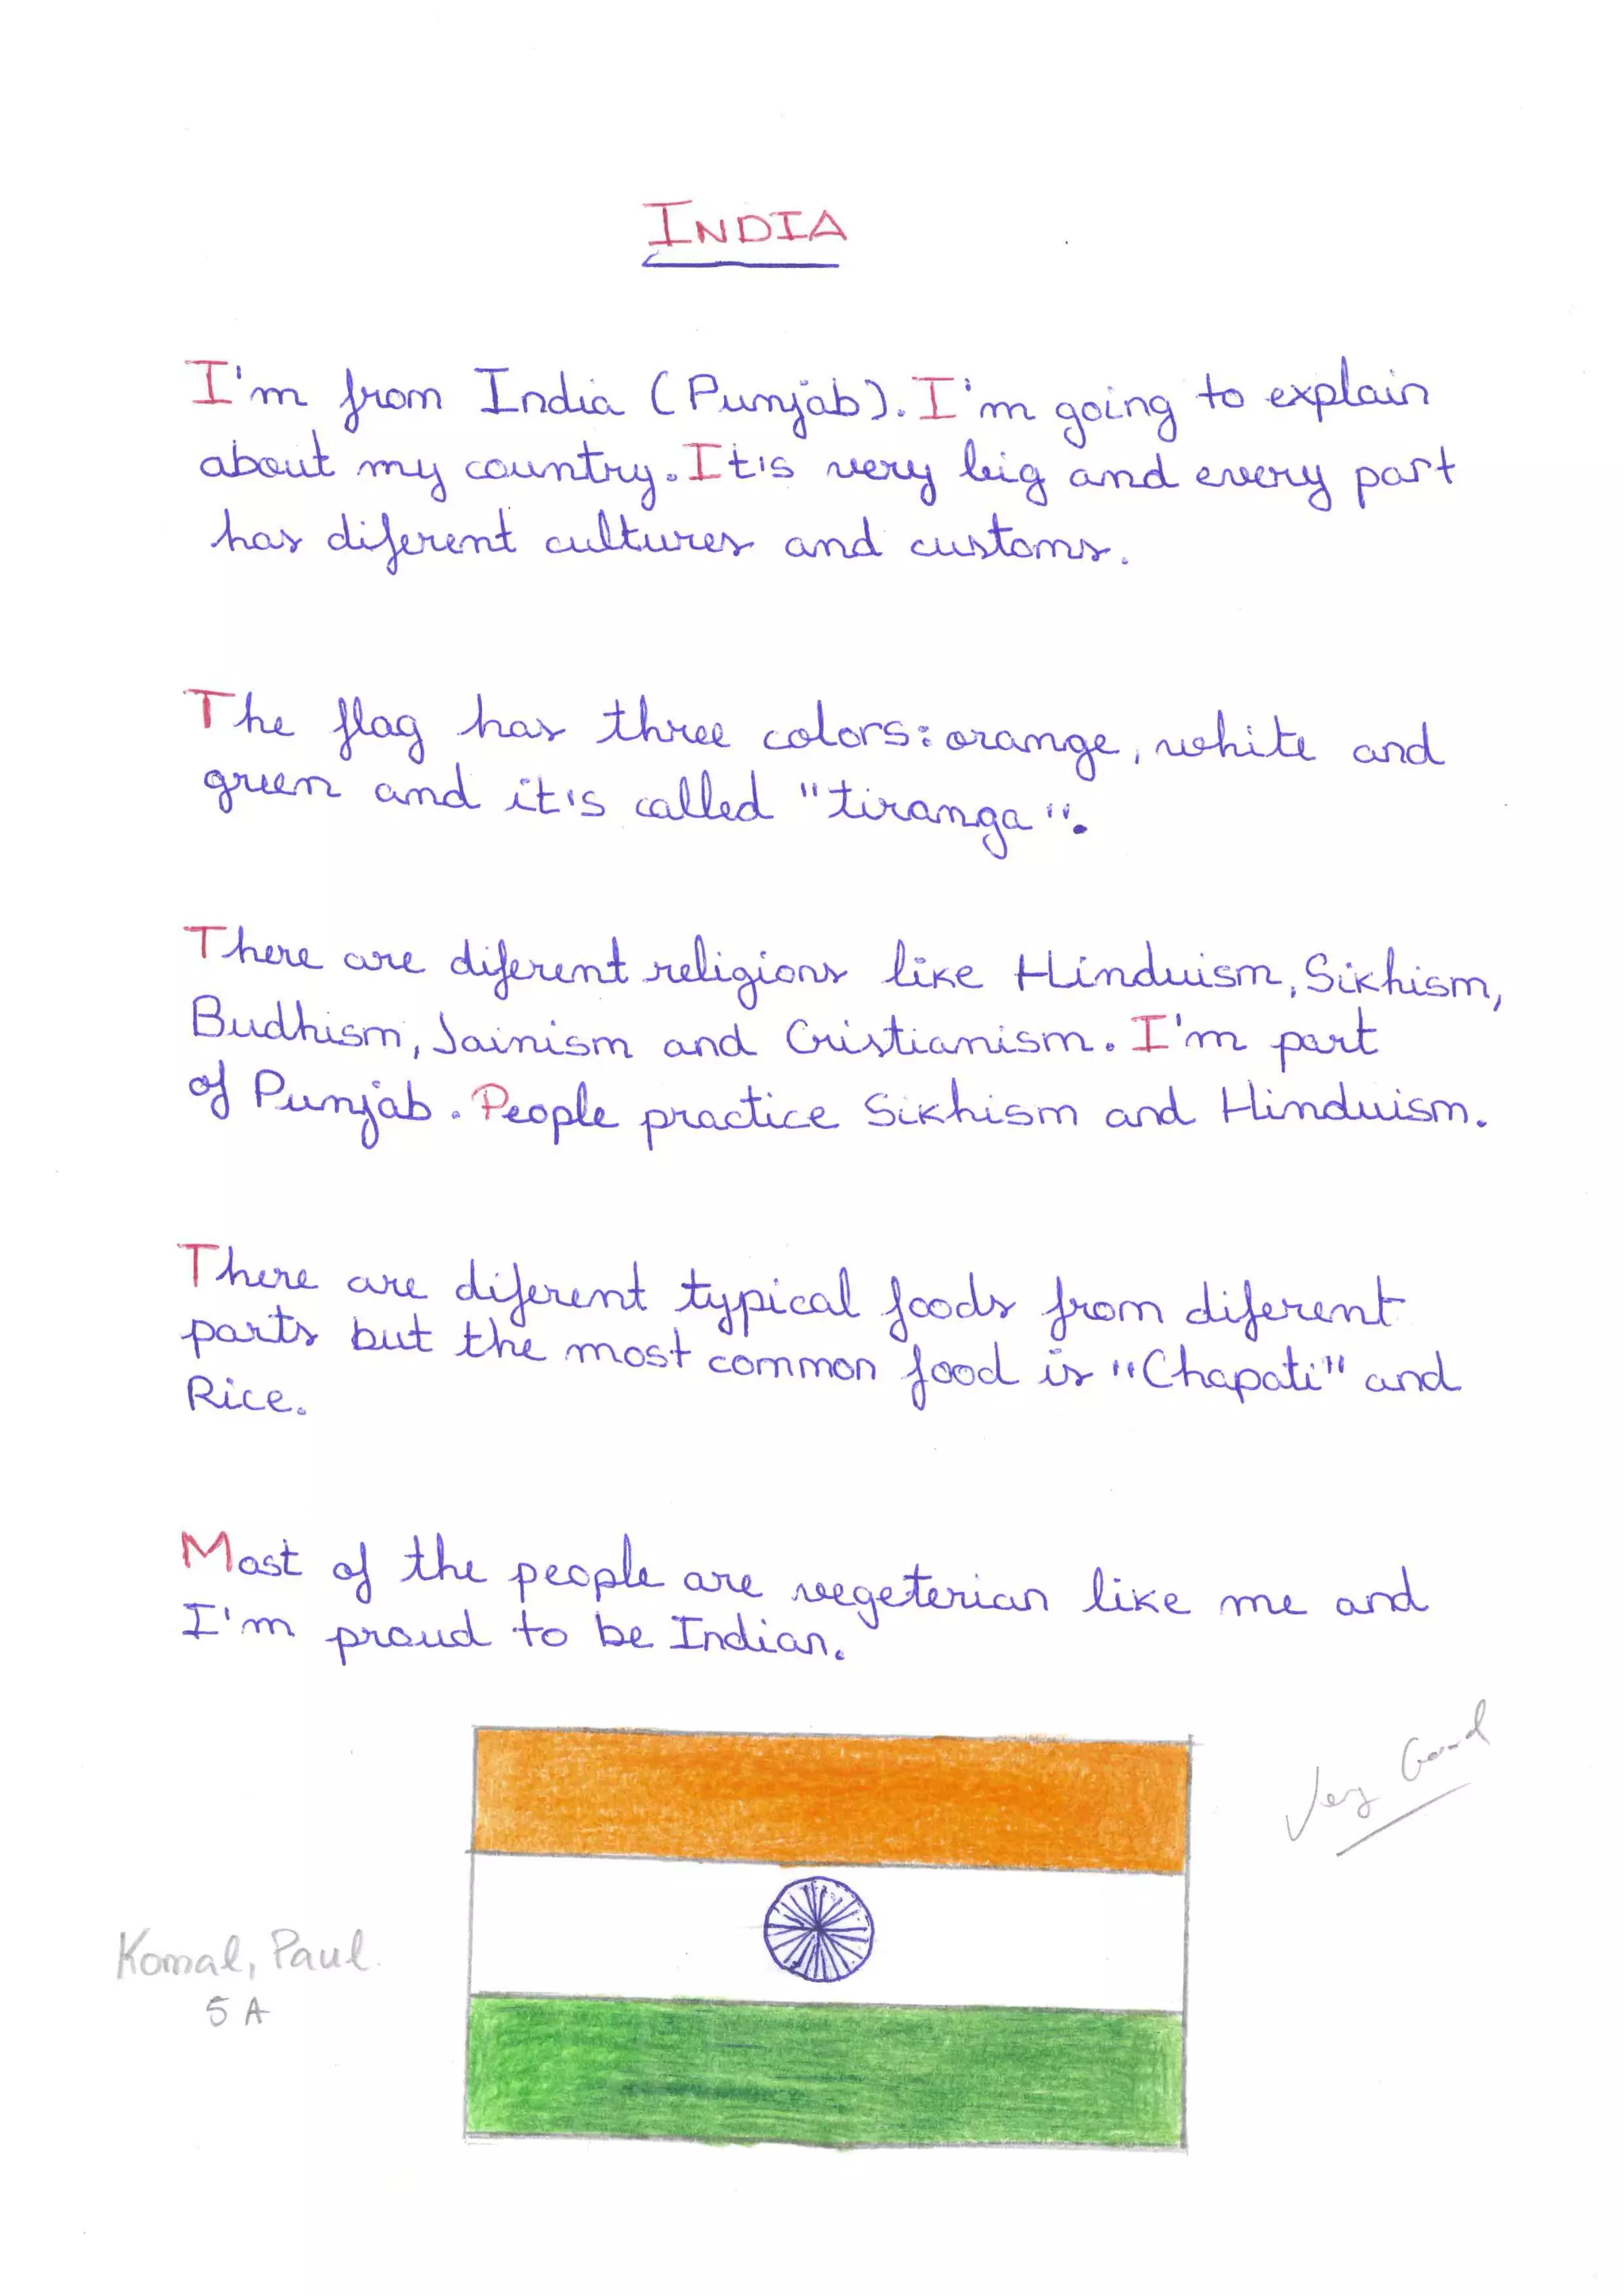 INDIA
I'm from India (Punjab). I'm going to explain
about my country. It's very big and every part
has diferent cultures and customs.
The flag has three colors: orange, white and
green and it's called "tiranga".
There are diferent religions like Hinduism, Sikhism,
Budhism, Jainism and Cristianism. I'm part
of Punjab. People practice Sikhism and Hinduism.
There are diferent typical foods from diferent
parts but the most common food is "Chapati" and
Rice.
Most of the people are vegeterian like me and
I'm proud to be Indian.
Very Good
Komal, Paul.
5 A